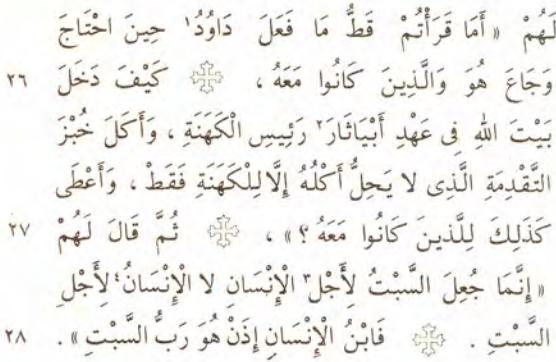 لَهُمْ « أَمَا قَرَأْتُمْ قَطُّ مَا فَعَلَ دَاوُدُ١ حِينَ احْتَاجَ
وَجَاعَ هُوَ وَالَّذِينَ كَانُوا مَعَهُ ، كَيْفَ دَخَلَ ٢٦
بَيْتَ اللهِ فى عَهْدِ أَبْيَاثَارَ٢ رَئِيسِ الْكَهَنَةِ ، وَأَكَلَ خُبْزَ
التَّقْدِمَةِ الَّذِى لا يَحِلُّ أَكْلُهُ إِلَّا لِلْكَهَنَةِ فَقَطْ ، وَأَعْطَى
كَذَلِكَ لِلَّذِينَ كَانُوا مَعَهُ ؟ » ، ثُمَّ قَالَ لَهُمْ ٢٧
« إِنَّمَا جُعِلَ السَّبْتُ لِأَجْلِ٣ الْإِنْسَانِ لا الْإِنْسَانُ٤ لِأَجْلِ
السَّبْتِ . فَابْنُ الْإِنْسَانِ إِذَنْ هُوَ رَبُّ السَّبْتِ » . ٢٨